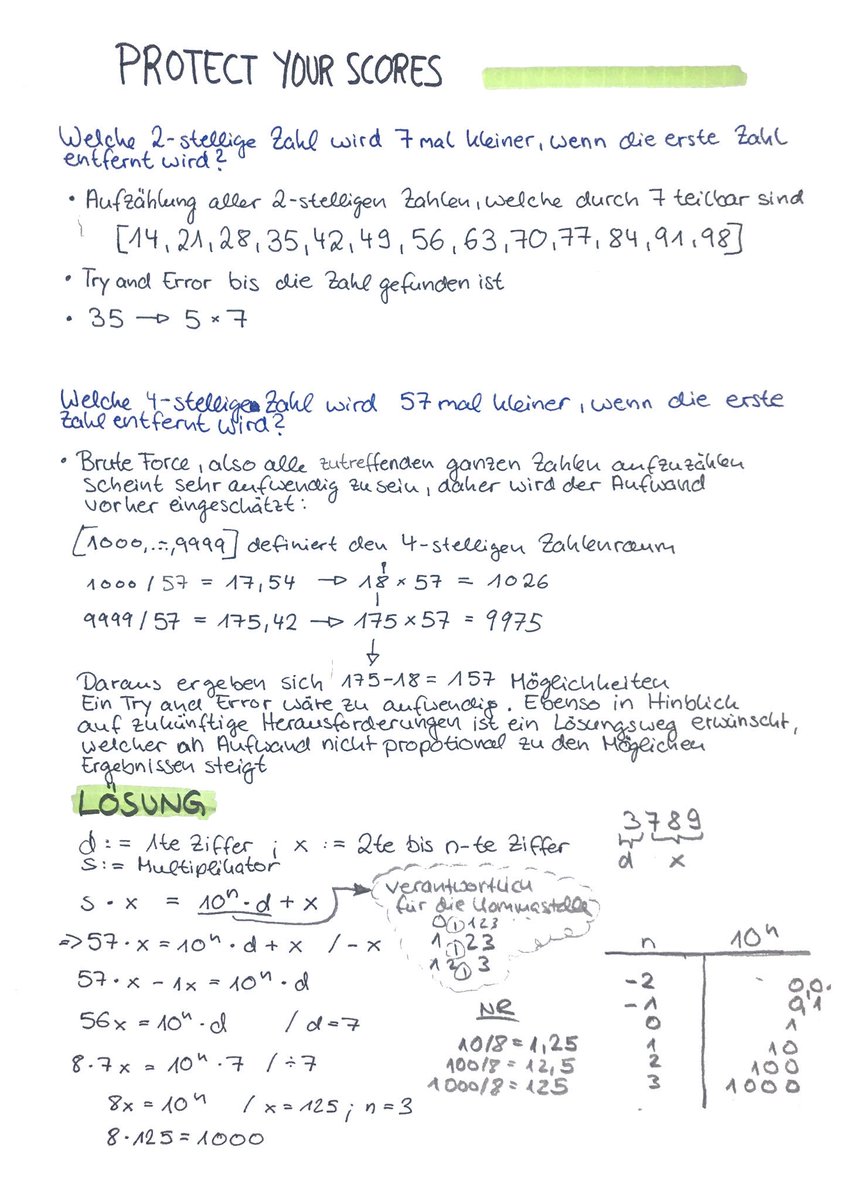 PROTECT YOUR SCORES
Welche 2-stellige Zahl wird 7 mal kleiner, wenn die erste Zahl
entfernt wird?
• Aufzählung aller 2-stelligen Zahlen, welche durch 7 teilbar sind
[14, 21, 28, 35, 42, 49, 56, 63, 70, 77, 84, 91, 98]
• Try and Error bis die Zahl gefunden ist
• 35 → 5 × 7
Welche 4-stellige Zahl wird 57 mal kleiner, wenn die erste
Zahl entfernt wird?
• Brute Force, also alle zutreffenden ganzen Zahlen aufzuzählen
scheint sehr aufwendig zu sein, daher wird der Aufwand
vorher eingeschätzt:
[1000, ..., 9999] definiert den 4-stelligen Zahlenraum
1000 / 57 = 17,54 → 18 × 57 = 1026
9999 / 57 = 175,42 → 175 × 57 = 9975
Daraus ergeben sich 175-18 = 157 Möglichkeiten
Ein Try and Error wäre zu aufwendig. Ebenso in Hinblick
auf zukünftige Herausforderungen ist ein Lösungsweg erwünscht,
welcher an Aufwand nicht propotional zu den Möglichen
Ergebnissen steigt
LÖSUNG
d := 1te Ziffer ; x := 2te bis n-te Ziffer
s := Multiplikator
3789
d x
s · x = 10ⁿ · d + x
verantwortlich
für die Kommastelle
0,123
1,23
12,3
=> 57 · x = 10ⁿ · d + x / - x
57 · x - 1x = 10ⁿ · d
56x = 10ⁿ · d / d = 7
8 · 7x = 10ⁿ · 7 / ÷ 7
8x = 10ⁿ / x = 125 ; n = 3
8 · 125 = 1000
NR
10/8 = 1,25
100/8 = 12,5
1000/8 = 125
n 10ⁿ
-2 0,0.
-1 0,1
0 1
1 10
2 100
3 1000